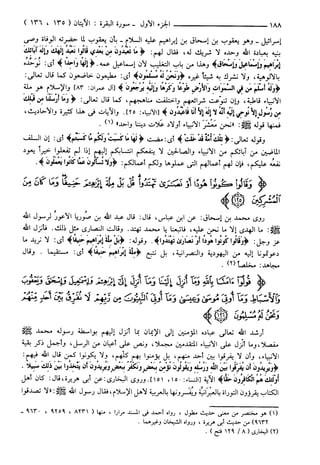 ١٨٨ الجزء الأول - سورة البقرة: الآيتان ( ١٣٥ ، ١٣٦ )
إسرائيل - وهو يعقوب بن إسحاق بن إبراهيم عليه السلام - بأن يعقوب لما حضرته الوفاة وصى
بنيه بعبادة الله وحده لا شريك له، فقال لهم: ﴿ ما تعبدون من بعدي قالوا نعبد إلهك وإله آبائك
إبراهيم وإسماعيل وإسحاق﴾ وهذا من باب التغليب لأن إسماعيل عمه. ﴿ إلها واحدا ﴾ أي: نوحّده
بالألوهية، ولا نشرك به شيئاً غيره ﴿ونحن له مسلمون﴾ أي: مطيعون خاضعون كما قال تعالى:
﴿ وله أسلم من في السموات والأرض طوعا وكرها وإليه يرجعون ﴾ [آل عمران: ٨٣] والإسلام هو ملة
الأنبياء قاطبة، وإن تنوعت شرائعهم واختلفت مناهجهم، كما قال تعالى: ﴿ وما أرسلنا من قبلك
من رسول إلا نوحي إليه أنه لا إله إلا أنا فاعبدون ﴾ [الأنبياء: ٢٥]. والآيات في هذا كثيرة والأحاديث،
فمنها قوله ﷺ: «نحن معشر الأنبياء أولاد علات ديننا واحد» (١) .
وقوله تعالى: ﴿ تلك أمة قد خلت ﴾ أي: مضت ﴿ لها ما كسبت ولكم ما كسبتم﴾ أي: إن السلف
الماضين من آبائكم من الأنبياء والصالحين لا ينفعكم انتسابكم إليهم إذا لم تفعلوا خيراً يعود
نفعه عليكم، فإن لهم أعمالهم التي عملوها ولكم أعمالكم: ﴿ولا تسألون عما كانوا يعملون ﴾.
﴿ وقالوا كونوا هودا أو نصارى تهتدوا قل بل ملة إبراهيم حنيفا وما كان من
المشركين ﴿١٣٥﴾ ﴾
روى محمد بن إسحاق: عن ابن عباس، قال: قال عبد الله بن صوريا الأعور لرسول الله
ﷺ: ما الهدى إلا ما نحن عليه، فاتبعنا يا محمد تهتد. وقالت النصارى مثل ذلك. فأنزل الله
عز وجل: ﴿وقالوا كونوا هودا أو نصارى تهتدوا﴾. وقوله: ﴿ قل بل ملة إبراهيم حنيفا ﴾ أي: لا نريد ما
دعوتمونا إليه من اليهودية والنصرانية، بل نتبع ﴿ملة إبراهيم حنيفا ﴾ أي: مستقيماً . وقال
مجاهد: مخلصاً (٢) .
﴿ قولوا آمنا بالله وما أنزل إلينا وما أنزل إلى إبراهيم وإسماعيل وإسحاق ويعقوب
والأسباط وما أوتي موسى وعيسى وما أوتي النبيون من ربهم لا نفرق بين أحد منهم
ونحن له مسلمون ﴿١٣٦﴾ ﴾
أرشد الله تعالى عباده المؤمنين إلى الإيمان بما أنزل إليهم بواسطة رسوله محمد ﷺ
مفصلا، وما أنزل على الأنبياء المتقدمين مجملاً، ونص على أعيان من الرسل، وأجمل ذكر بقية
الأنبياء، وأن لا يفرقوا بين أحد منهم، بل يؤمنوا بهم كلهم، ولا يكونوا كمن قال الله فيهم:
﴿ويريدون أن يفرقوا بين الله ورسله ويقولون نؤمن ببعض ونكفر ببعض ويريدون أن يتخذوا بين ذلك سبيلا .
أولئك هم الكافرون حقا﴾ الآية [النساء: ١٥٠، ١٥١]. وروى البخاري: عن أبي هريرة، قال: كان أهل
الكتاب يقرؤون التوراة بالعبرانية ويفسرونها بالعربية لأهل الإسلام، فقال رسول الله ﷺ: «لا تصدقوا
(١) هو مختصر من معنى حديث مطول ، رواه أحمد في المسند مراراً ، منها ( ٨٢٣١ ، ٩٢٥٩ ، ٩٦٣٠ -
٩٦٣٢) من حديث أبي هريرة . ورواه الشيخان وغيرهما .
(٢) البخاري ( ٨ / ١٢٩ فتح ) .